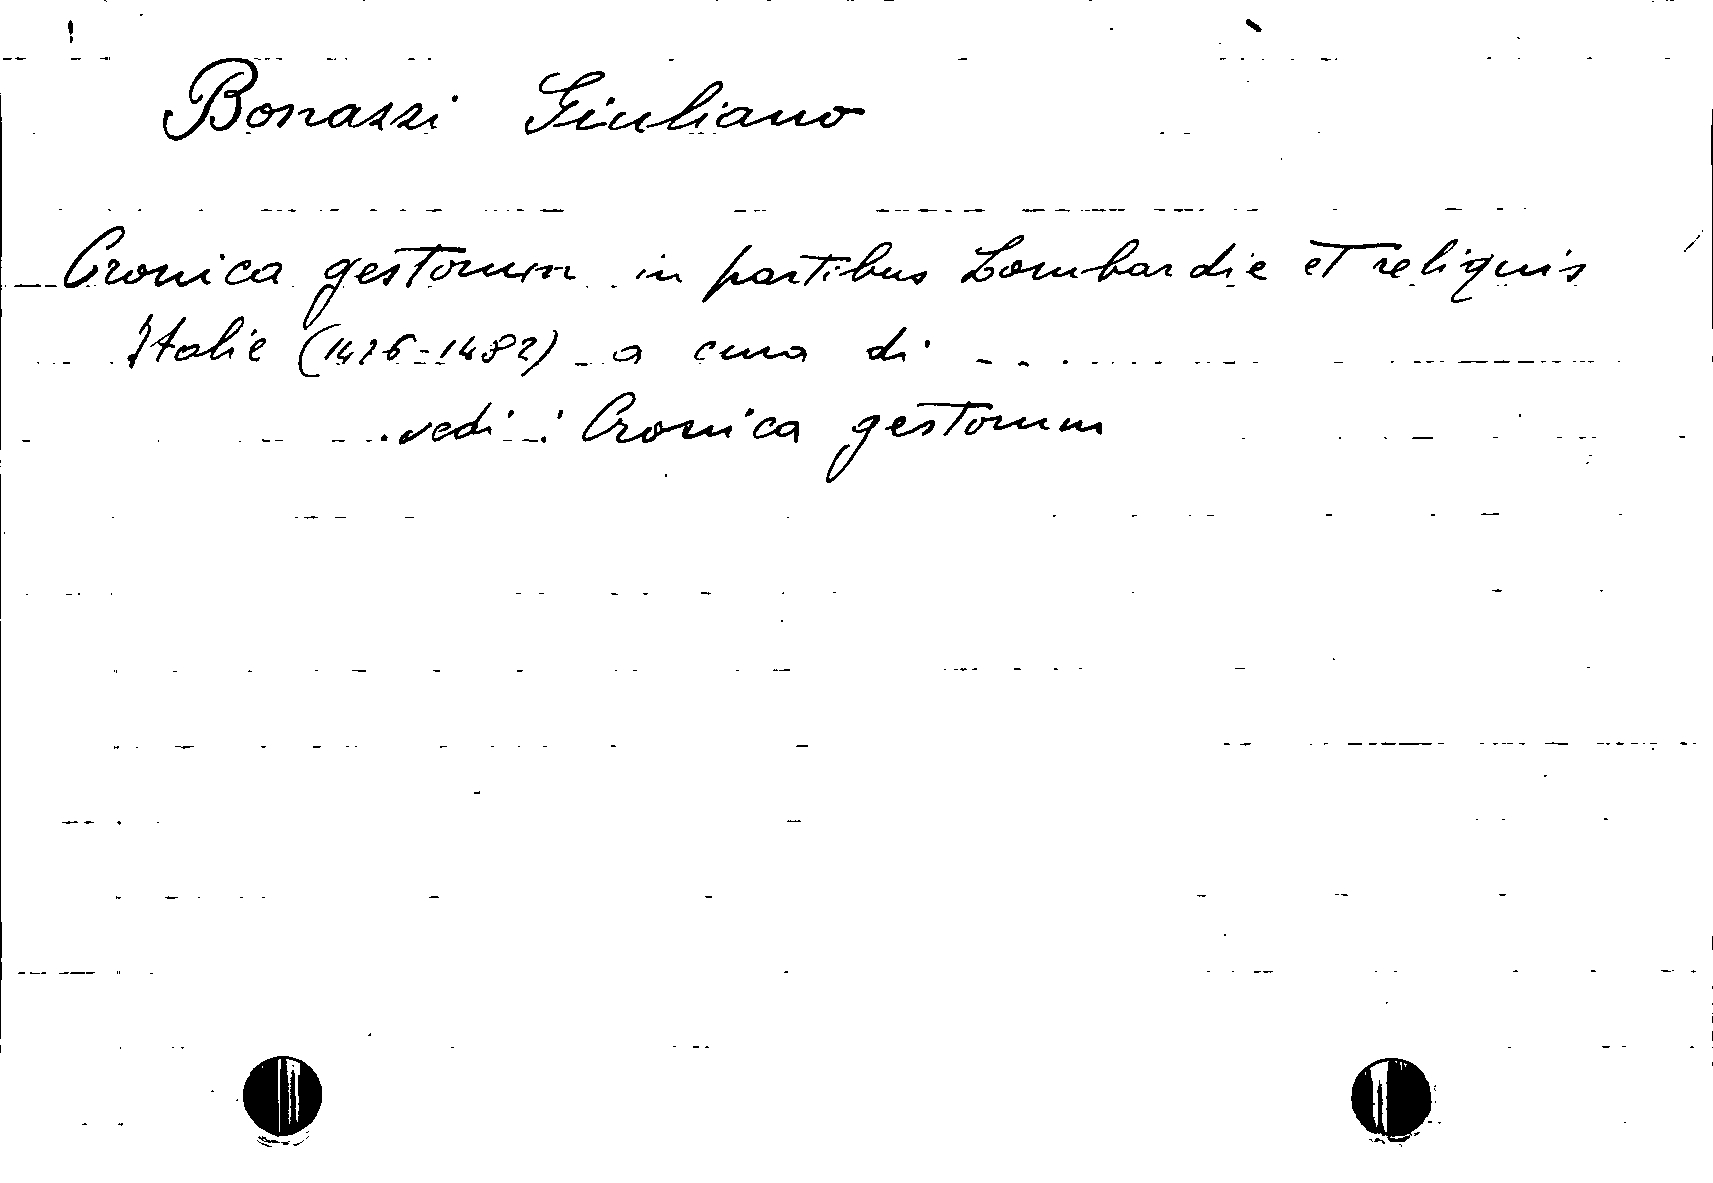 Bonazzi Giuliano
Cronica gestorum in partibus Lombardie et reliquis
Italie (1476-1482) a cura di ...
vedi: Cronica gestorum